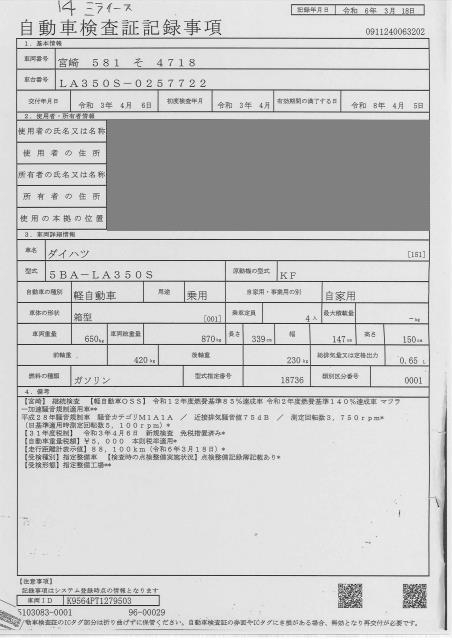 14 ミライース
記録年月日 令和 6年 3月 18日
自動車検査証記録事項
0911240063202
1. 基本情報
車両番号 宮崎 581 そ 4718
車台番号 LA350S-0257722
交付年月日 令和 3年 4月 6日 初度検査年月 令和 3年 4月 有効期間の満了する日 令和 8年 4月 5日
2. 使用者・所有者情報
使用者の氏名又は名称
使用者の住所
所有者の氏名又は名称
所有者の住所
使用の本拠の位置
3. 車両詳細情報
車名 ダイハツ [151]
型式 5BA-LA350S 原動機の型式 KF
自動車の種別 軽自動車 用途 乗用 自家用・事業用の別 自家用
車体の形状 箱型 [001] 乗車定員 4人 最大積載量 -kg
車両重量 650kg 車両総重量 870kg 長さ 339cm 幅 147cm 高さ 150cm
前軸重 420kg 後軸重 230kg 総排気量又は定格出力 0.65L
燃料の種類 ガソリン 型式指定番号 18736 類別区分番号 0001
4. 備考
【宮崎】 継続検査 【軽自動車OSS】 令和12年度燃費基準85%達成車 令和2年度燃費基準140%達成車 マフラ
ー加速騒音規制適用車**
平成28年騒音規制車 騒音カテゴリM1A1A / 近接排気騒音値75dB / 測定回転数3,750rpm*
(旧基準適用時測定回転数5,100rpm)*
【31年度税制】 令和3年4月6日 新規検査 免税措置済み*
【自動車重量税額】¥5,000 本則税率適用*
【走行距離計表示値】88,100km(令和6年3月18日)*
【受検種別】指定整備車 【検査時の点検整備実施状況】点検整備記録簿記載あり*
【受検形態】指定整備工場**
【注意事項】
記録事項はシステム登録時点の情報となります
車両ID K9564PT1279503
5103083-0001 96-00029
自動車検査証のICタグ部分は折り曲げずに保管ください。自動車検査証の券面やICタグにき損がある場合、無効となり再交付が必要です。